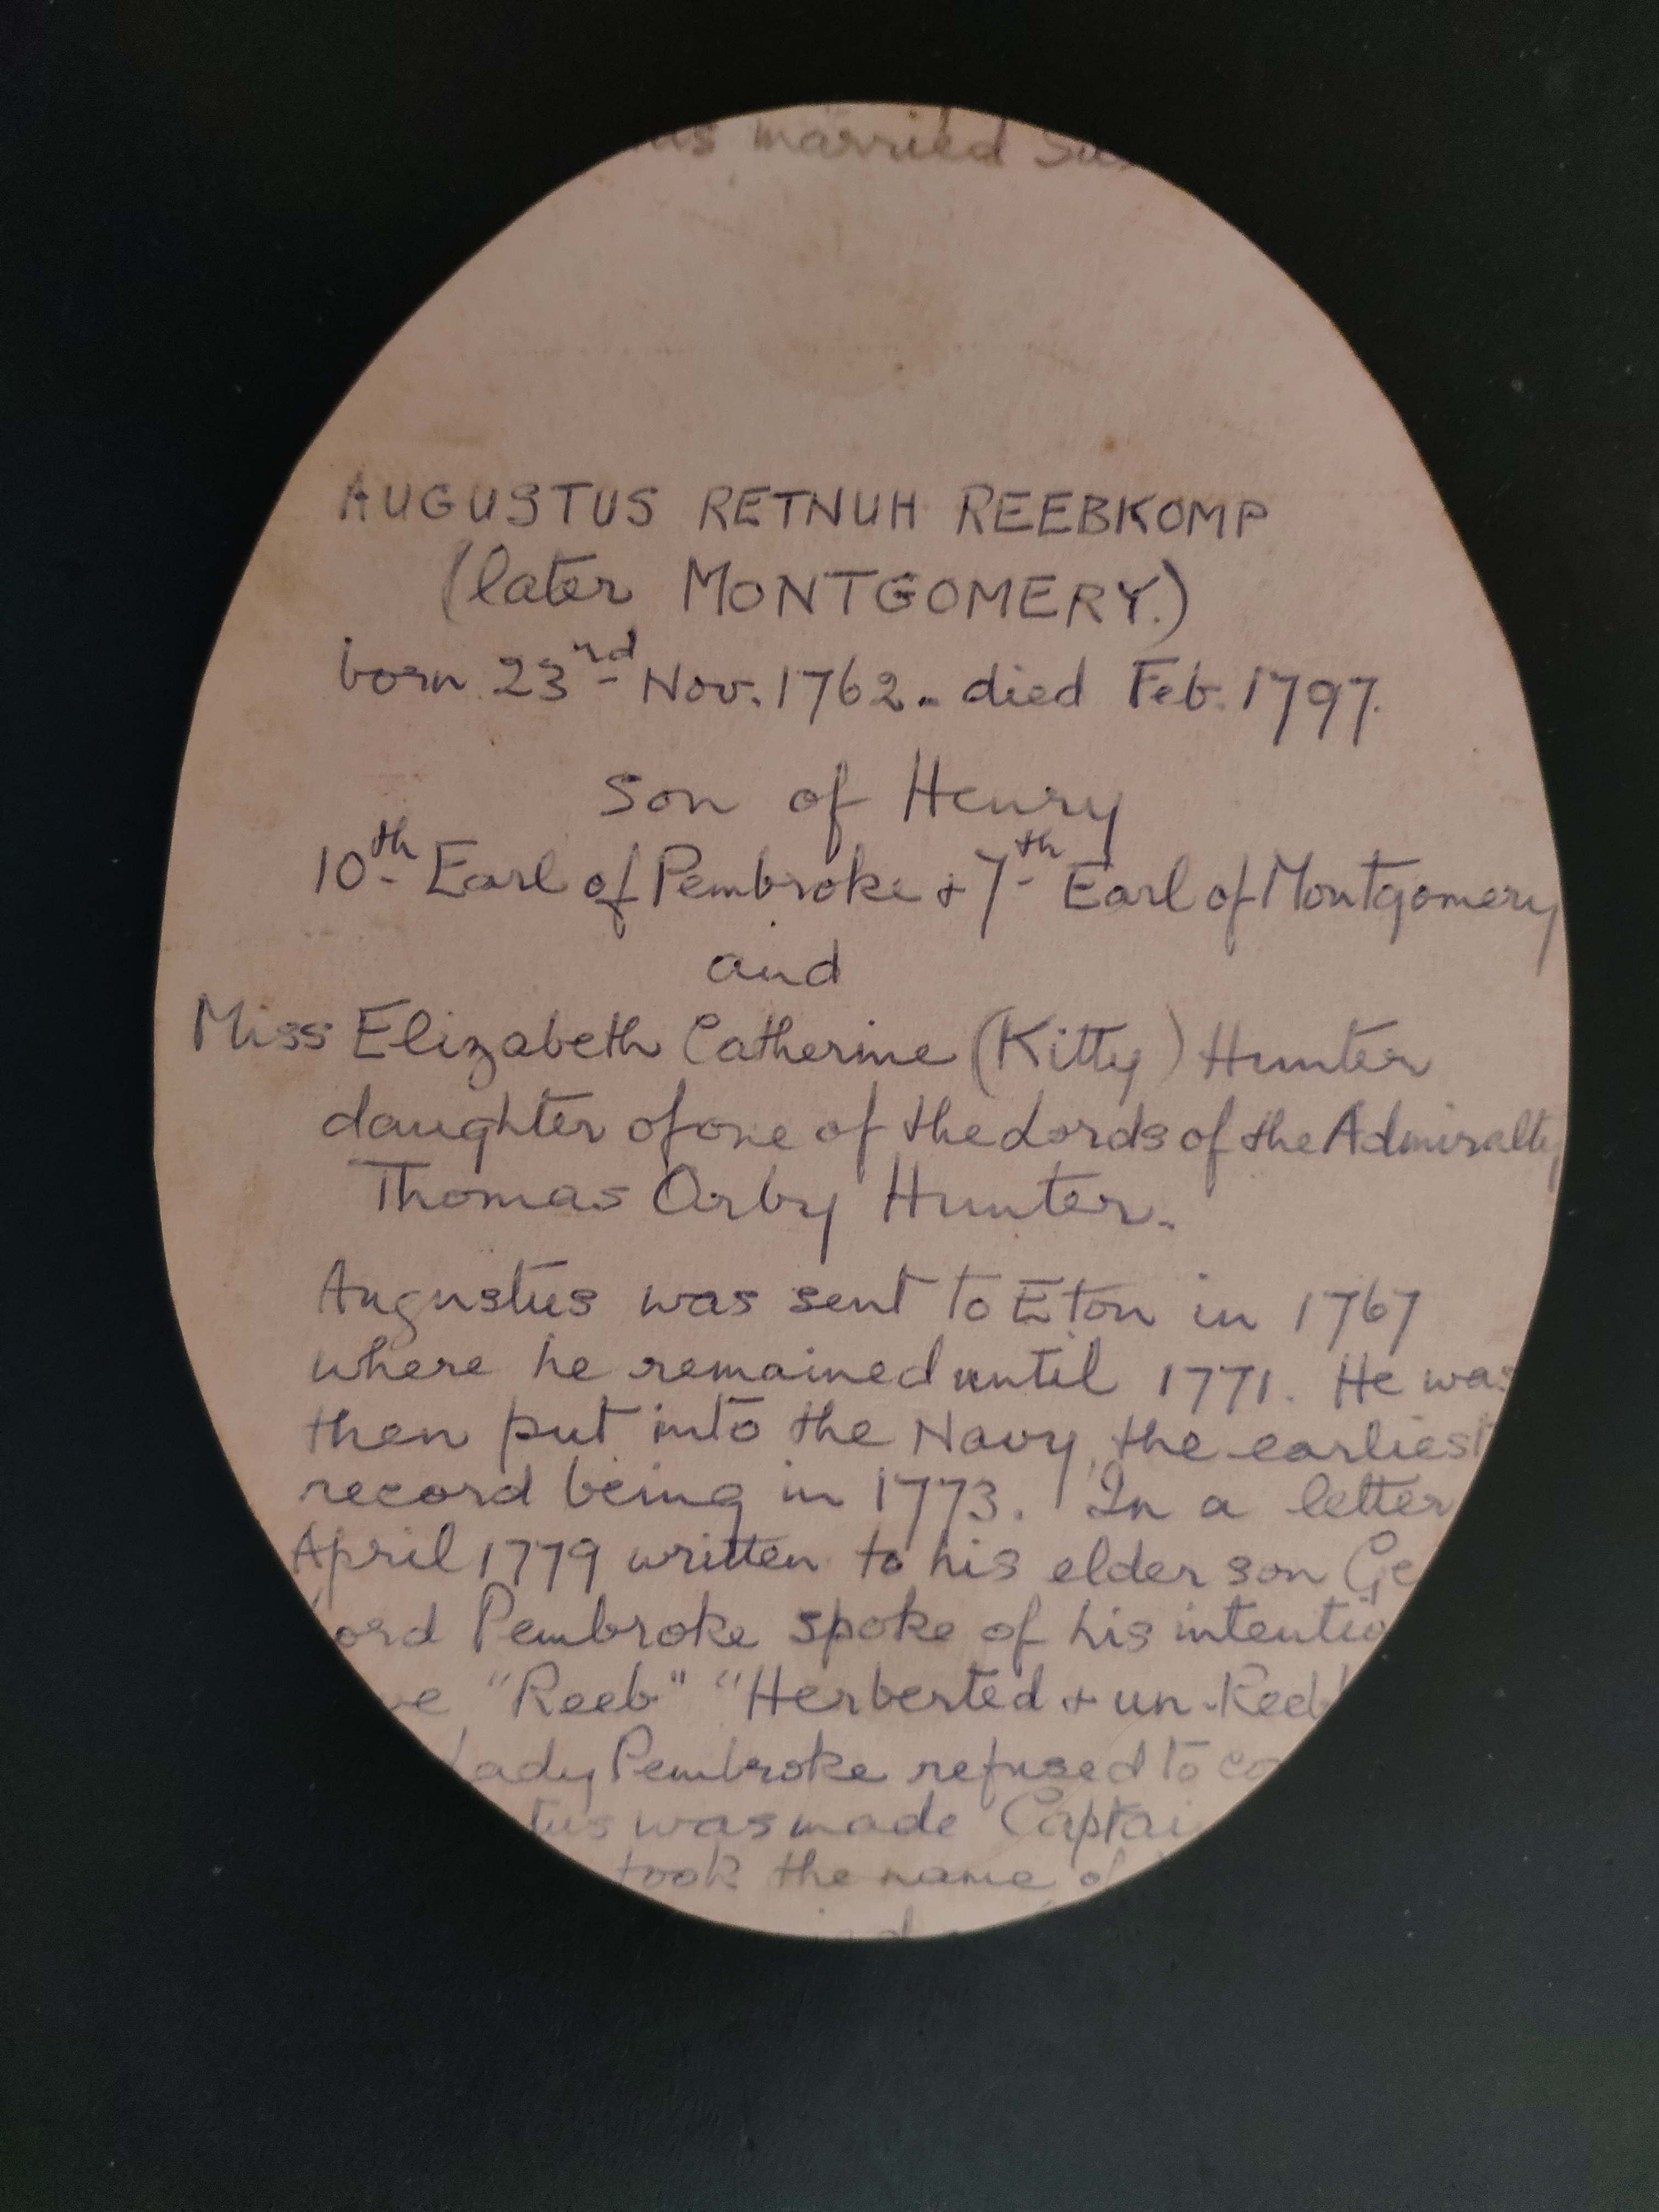 married
AUGUSTUS RETNUH REEBKOMP
(later MONTGOMERY.)
born 23rd Nov. 1762. died Feb. 1797.
Son of Henry
10th Earl of Pembroke + 7th Earl of Montgomery
and
Miss Elizabeth Catherine (Kitty) Hunter
daughter of one of the Lords of the Admiralty
Thomas Orby Hunter.
Augustus was sent to Eton in 1767
where he remained until 1771. He was
then put into the Navy, the earliest
record being in 1773. In a letter
April 1779 written to his elder son Ge
ord Pembroke spoke of his intentio
ve "Reeb" "Herberted + un-Reeb
Lady Pembroke refused to co
tus was made Captai
took the name of